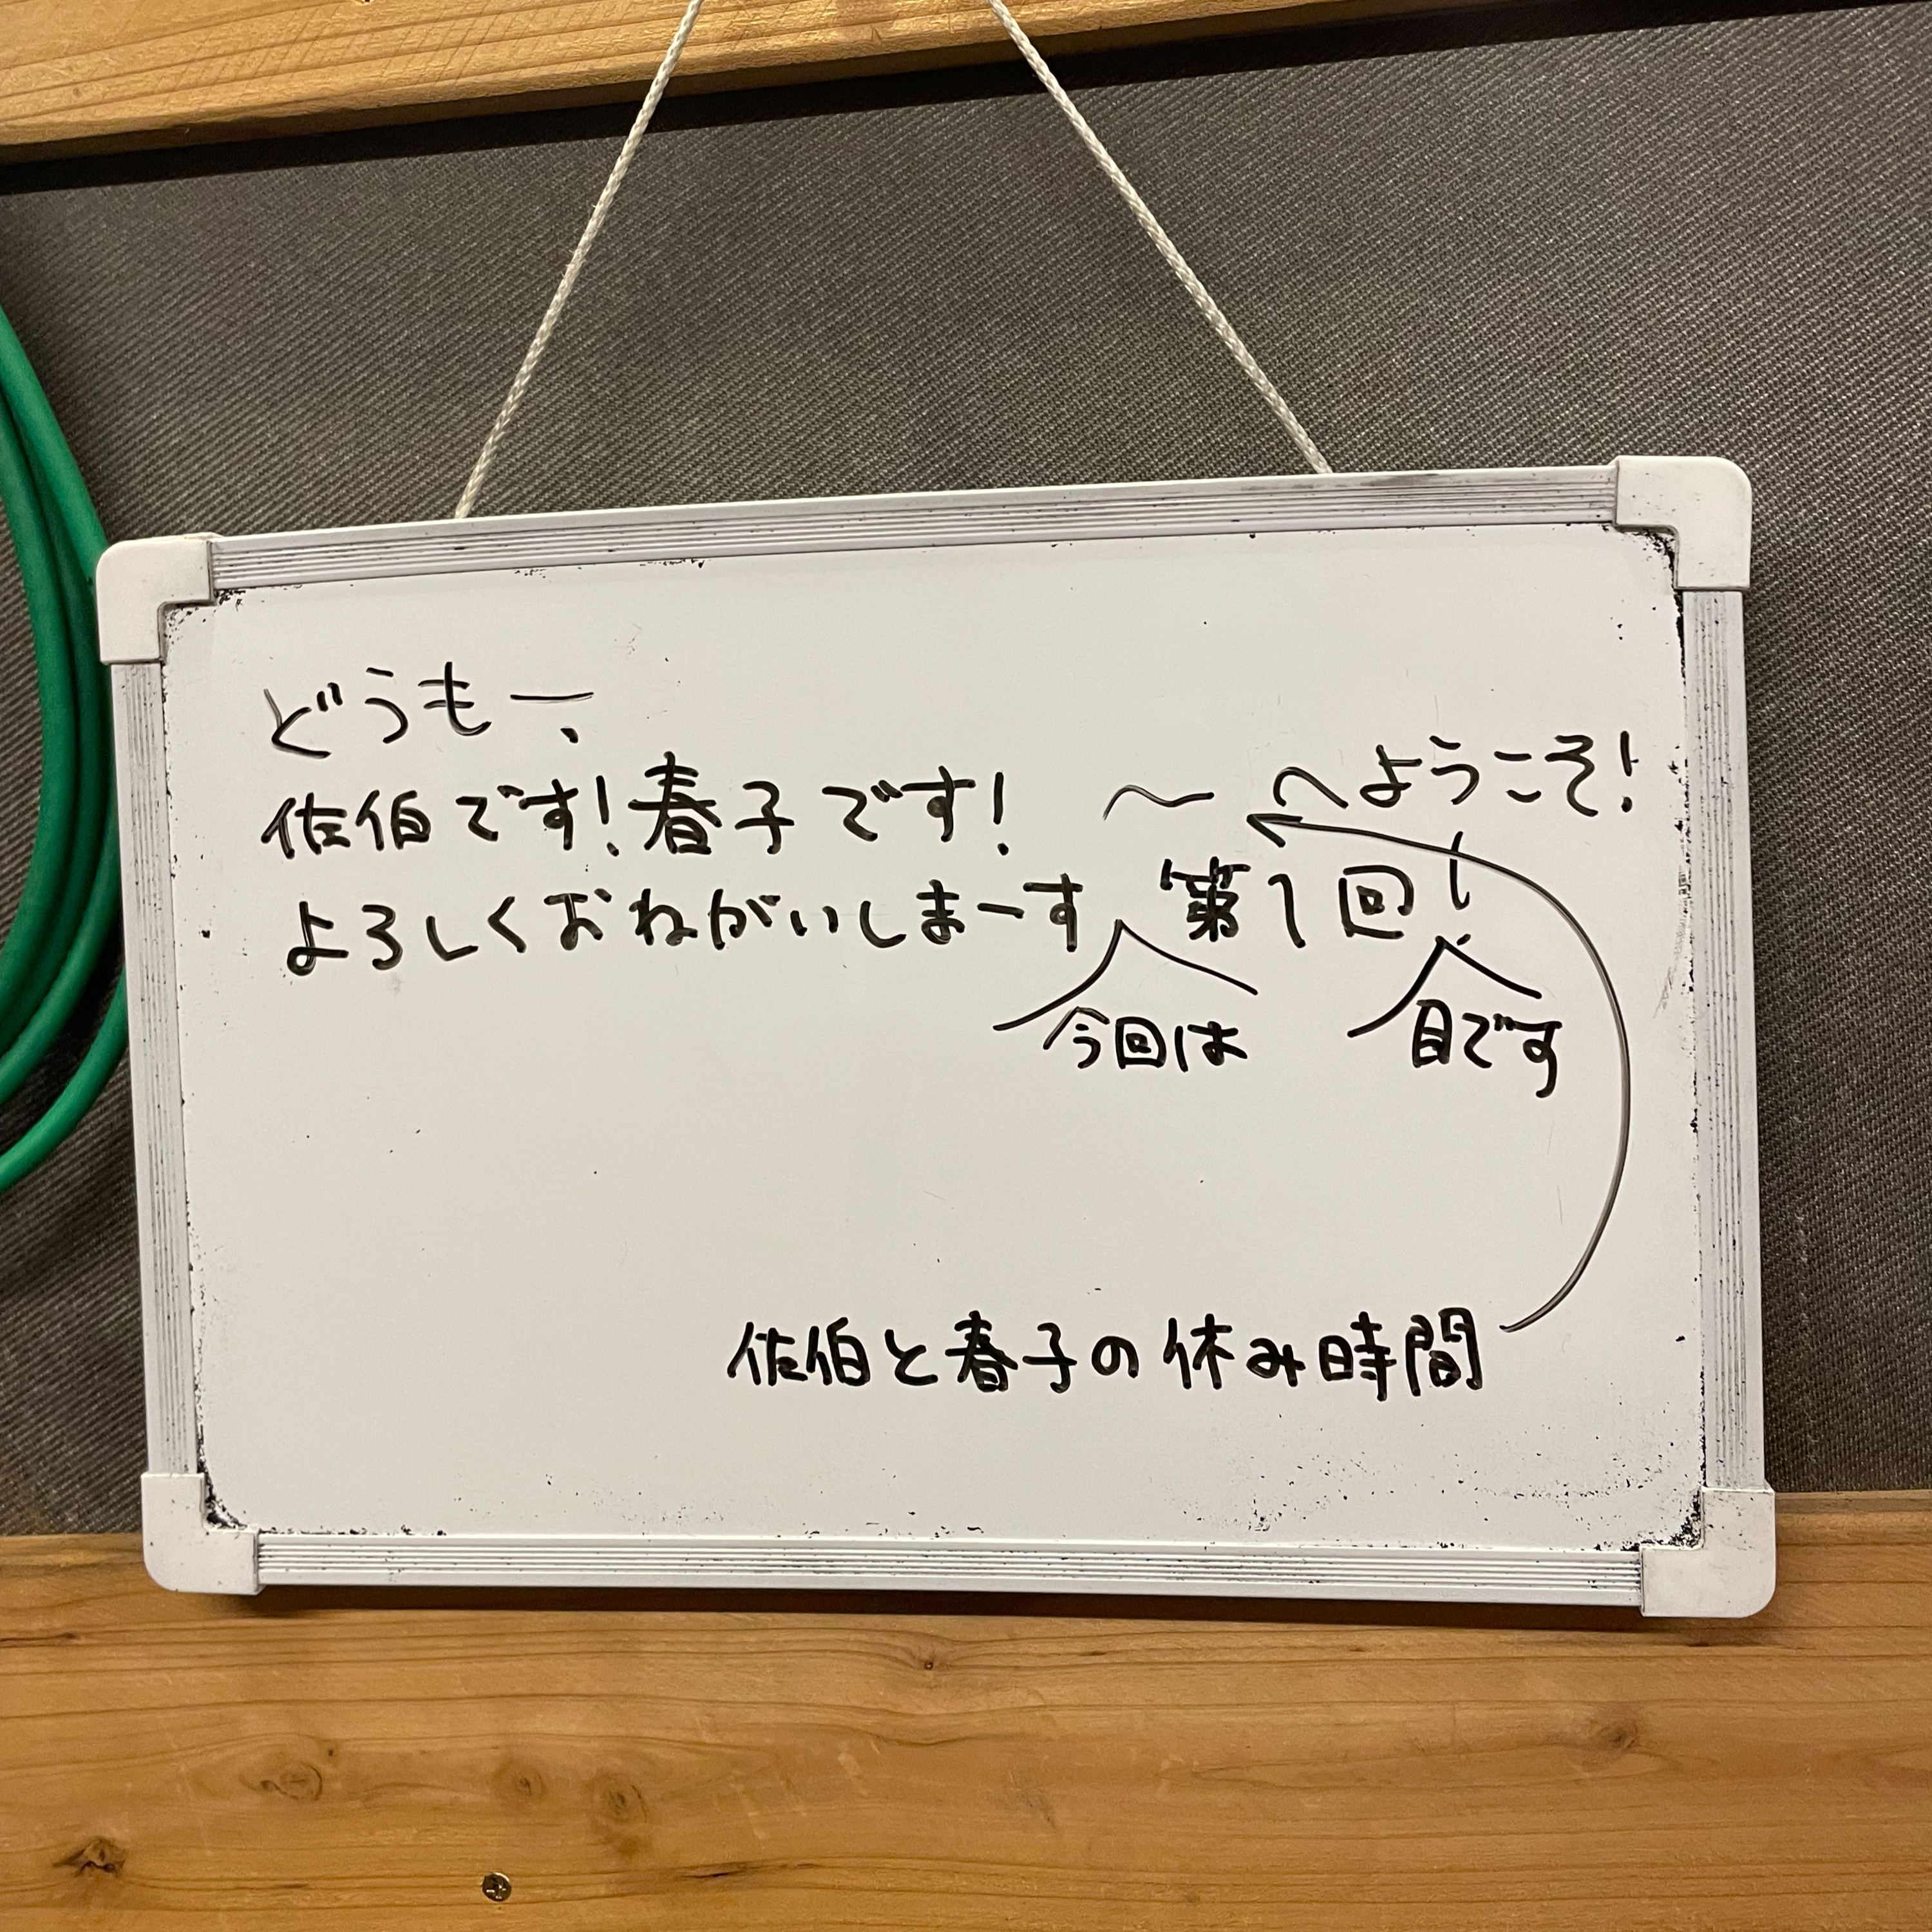 どうもー、
佐伯です!春子です! 〜 へようこそ!
よろしくおねがいしまーす 第1回
今回は 目です
佐伯と春子の休み時間